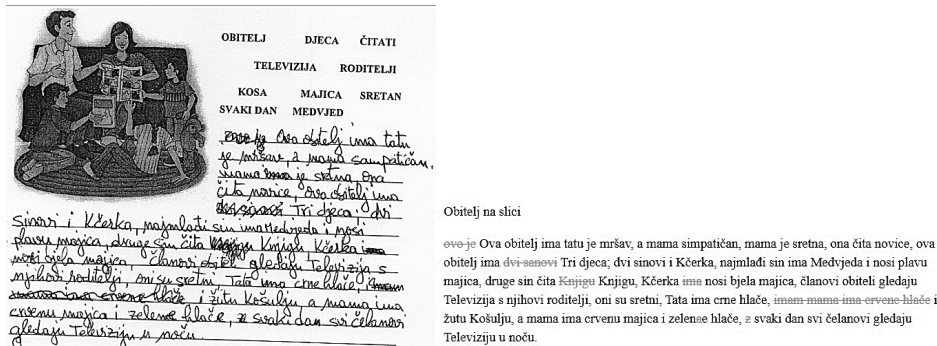 OBITELJ DJECA ČITATI
TELEVIZIJA RODITELJI
KOSA MAJICA SRETAN
SVAKI DAN MEDVJED
ovo je Ova obitelj ima tatu
je mršav, a mama simpatičan,
mama je sretna, ona
čita novice, ova obitelj ima
dvi sanovi Tri djeca; dvi
sinovi i Kčerka, najmlađi sin ima Medvjeda i nosi
plavu majica, druge sin čita Knjigu Knjigu, Kčerka ima
nosi bjela majica, članovi obiteli gledaju Televizija s
njihovi roditelji, oni su sretni, Tata ima crne hlače, imam
mama ima crvene hlače i žutu Košulju, a mama ima
crvenu majica i zelene hlače, z svaki dan svi čelanovi
gledaju Televiziju u noču.
Obitelj na slici
ovo je Ova obitelj ima tatu je mršav, a mama simpatičan, mama je sretna, ona čita novice, ova
obitelj ima dvi sanovi Tri djeca; dvi sinovi i Kčerka, najmlađi sin ima Medvjeda i nosi plavu
majica, druge sin čita Knjigu Knjigu, Kčerka ima nosi bjela majica, članovi obiteli gledaju
Televizija s njihovi roditelji, oni su sretni, Tata ima crne hlače, imam mama ima crvene hlače i
žutu Košulju, a mama ima crvenu majica i zelenee hlače, z svaki dan svi čelanovi gledaju
Televiziju u noču.